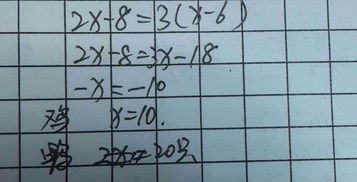 2x-8=3(x-6)
2x-8=3x-18
-x=-10
鸡 x=10.
2x=20只